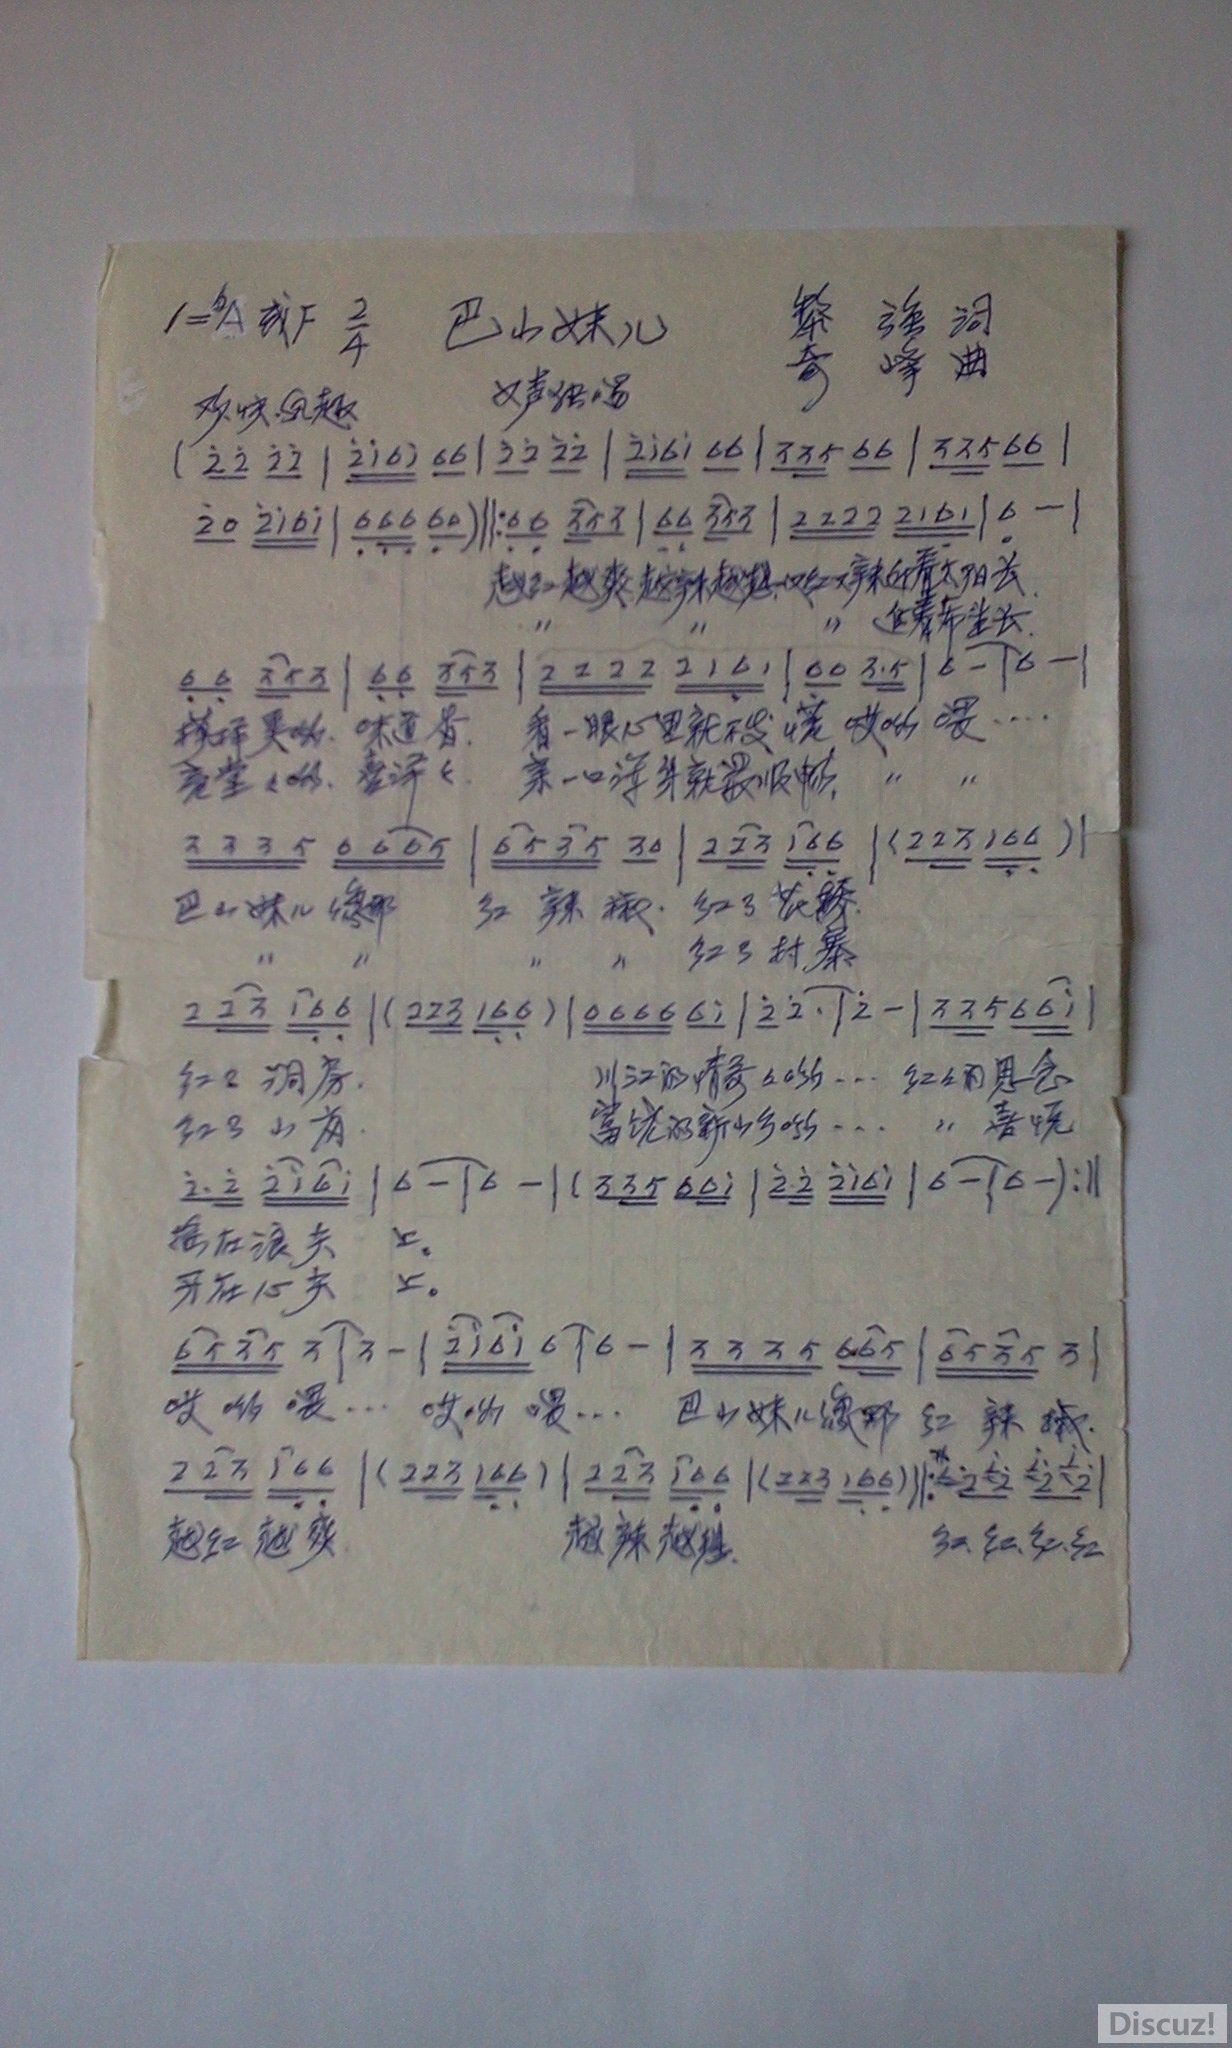 1=♭A或F 2/4 巴山妹儿 黎 强 词
奇 峰 曲
欢快.风趣 女声独唱
( 2̇2̇ 2̇2̇ | 2̇1̇61̇ 66 | 2̇2̇ 2̇2̇ | 2̇1̇61̇ 66 | 335 66 | 335 66 |
2̇0 2̇1̇61̇ | 6̣6̣6̣ 6̣0 ) ‖: 6̣6̣ 353 | 6̣6̣ 353 | 2222 216̣1 | 6̣ - |
越红越爽 越辣越 红辣 看太阳长
〃 〃 〃 长.
6̣6̣ 353 | 6̣6̣ 353 | 2222 216̣1 | 3.5 | 6 - | 6 - |
哟. 味道香. 看一眼心里就不发慌 哎哟喂 ....
哟. 亲一口浑身就 顺畅. 〃 〃
3335 6665 | 6535 30 | 223 16̣6̣ | ( 223 16̣6̣ ) |
巴山妹儿像那 红辣椒. 红了
〃 〃 〃 〃 红了村寨
223 16̣6̣ | ( 223 16̣6̣ ) | 6666 61̇ | 2̇2̇. | 2̇ - | 335 661̇ |
红了洞房. 川江的情哥哥哟 ... 红红的思念
红了山 . 富饶的新山乡哟 ... 〃 喜悦
2̇.2̇ 2̇1̇61̇ | 6 - | 6 - | ( 335 661̇ | 2̇.2̇ 2̇1̇61̇ | 6 - | 6 - ) :‖
在浪头 上。
在心头 上。
6535 3 | 3 - | 2̇1̇61̇ 6 | 6 - | 3335 665 | 6535 3 |
哎哟喂 ... 哎哟喂 ... 巴山妹儿像那红辣椒.
223 16̣6̣ | ( 223 16̣6̣ ) | 223 16̣6̣ | ( 223 16̣6̣ ) ‖:
越红越爽. 越辣越 . 红.红.红.红
Discuz!